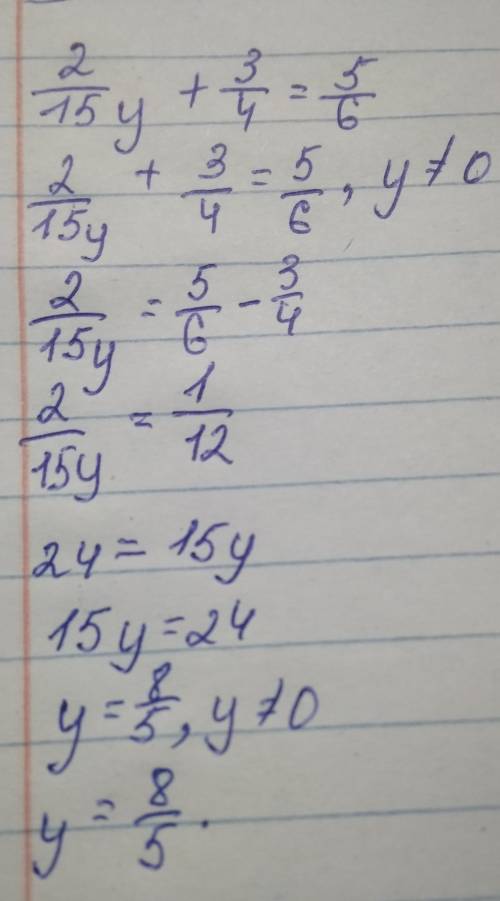 2/15y + 3/4 = 5/6
2/15y + 3/4 = 5/6, y ≠ 0
2/15y = 5/6 - 3/4
2/15y = 1/12
24 = 15y
15y = 24
y = 8/5, y ≠ 0
y = 8/5.